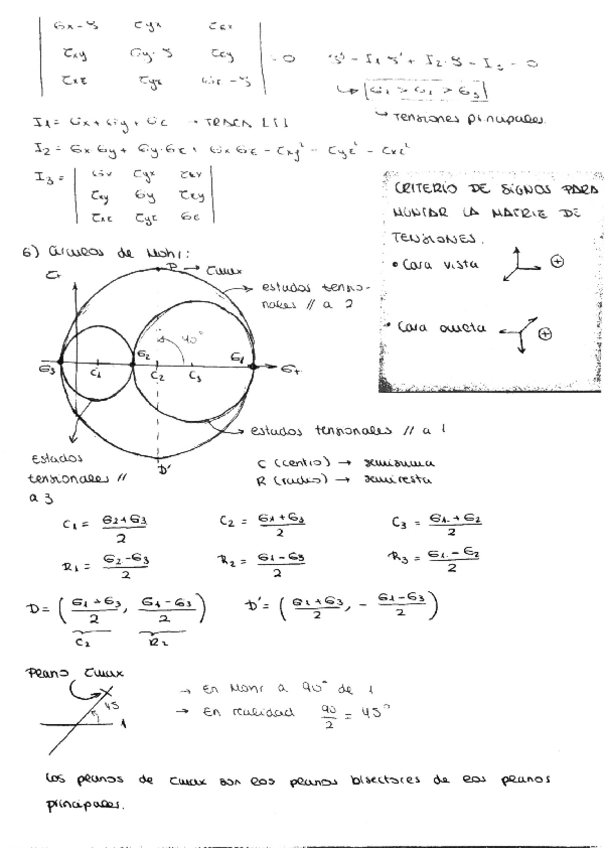 σx-ζ τyx τzx
τxy σy-ζ τzy = 0 ζ³ - I1 ζ² + I2·ζ - I3 = 0
τxz τyz σz-ζ
↳ [σ1 > σ2 > σ3]
↳ Tensiones principales.
I1 = σx + σy + σz → TRAZA [T]
I2 = σx σy + σy·σz + σx σz - τxy² - τyz² - τxz²
σx τyx τzx
I3 = τxy σy τzy
τxz τyz σz
CRITERIO DE SIGNOS PARA
MONTAR LA MATRIZ DE
TENSIONES.
• Cara vista ⊕
• Cara oculta ⊕
6) Círculos de Mohr:
τ D → τmax
estados tensio-
nales // a 2
90°
σ3 C1 σ2 C2 C3 σ1 σ
estados tensionales // a 1
Estados
tensionales //
a 3
D'
C (centro) → semisuma
R (radio) → semiresta
C1 = σ2+σ3/2 C2 = σ1+σ3/2 C3 = σ1+σ2/2
R1 = σ2-σ3/2 R2 = σ1-σ3/2 R3 = σ1-σ2/2
D = (σ1+σ3/2, σ1-σ3/2) D' = (σ1+σ3/2, - σ1-σ3/2)
C2 R2
Plano τmax
45
1
→ En Mohr a 90° de 1
→ En realidad 90/2 = 45°
Los planos de τmax son los planos bisectores de los planos
principales.